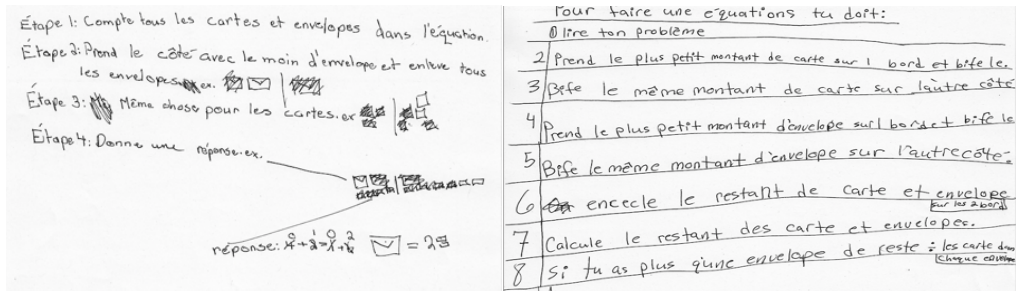 Étape 1: Compte tous les cartes et envelopes dans l'équation.
Étape 2: Prend le côté avec le moin d'envelope et enlève tous
les envelopes ex.
Étape 3: Même chose pour les cartes. ex
Étape 4: Donne une réponse. ex.
réponse:
Pour faire une équations tu doit:
1 lire ton problème
2 Prend le plus petit montant de carte sur 1 bord et bife le.
3 Bife le même montant de carte sur l'autre côté
4 Prend le plus petit montant d'envelope sur 1 bord et bife le
5 Bife le même montant d'envelope sur l'autre côté.
6 encecle le restant de carte et envelope
sur les 2 bord
7 Calcule le restant des carte et envelopes.
8 Si tu as plus qu'une envelope de reste ÷ les carte dans
chaque envelope